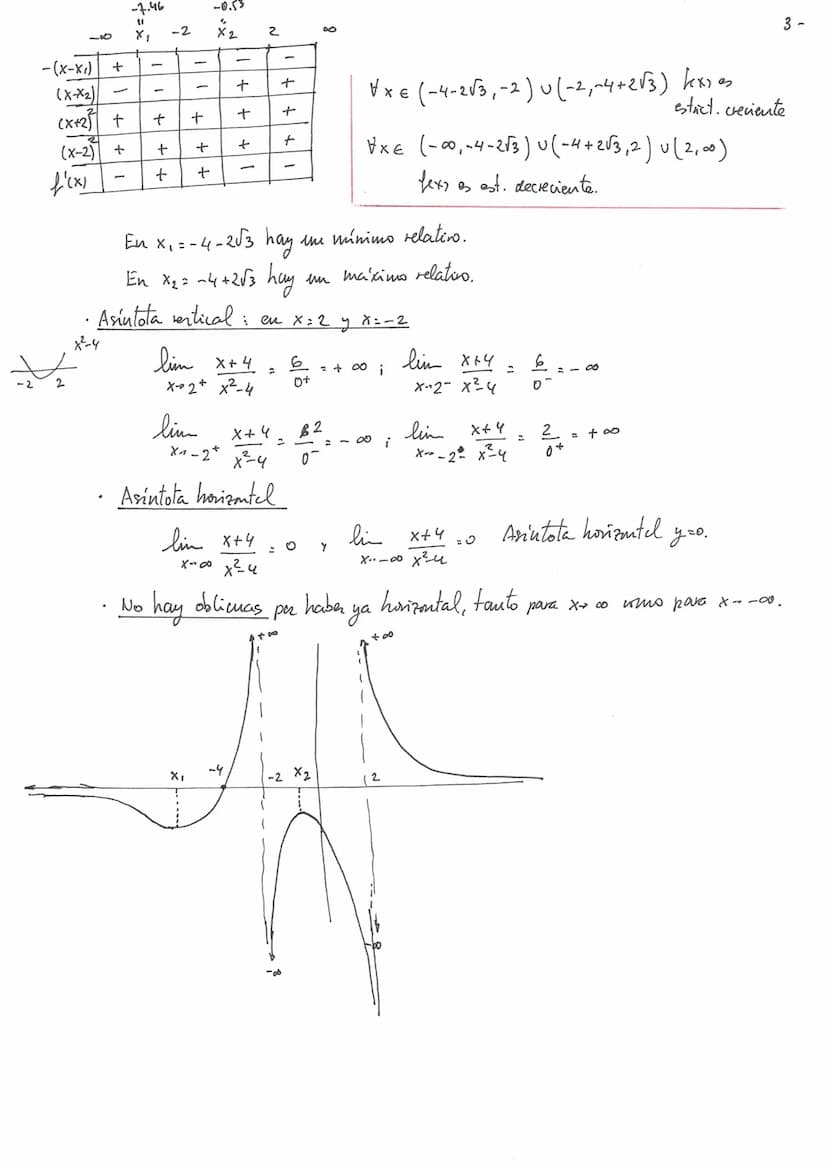 3-
-7.46 -0.53
-∞ x₁ -2 x₂ 2 ∞
-(x-x₁) + - - - -
(x-x₂) - - - + +
(x+2)² + + + + +
(x-2)² + + + + +
f'(x) - + + - -
∀x∈(-4-2√3,-2)∪(-2,-4+2√3) f(x) es
estrict. creciente
∀x∈ (-∞,-4-2√3)∪(-4+2√3,2)∪(2,∞)
f(x) es est. decreciente.
En x₁=-4-2√3 hay un mínimo relativo.
En x₂=-4+2√3 hay un máximo relativo.
· Asíntota vertical: en x=2 y x=-2
x²-4
-2 2
lim x→2⁺ (x+4)/(x²-4) = 6/0⁺ = +∞ ; lim x→2⁻ (x+4)/(x²-4) = 6/0⁻ = -∞
lim x→-2⁺ (x+4)/(x²-4) = 2/0⁻ = -∞ ; lim x→-2⁻ (x+4)/(x²-4) = 2/0⁺ = +∞
· Asíntota horizontal
lim x→∞ (x+4)/(x²-4) = 0 y lim x→-∞ (x+4)/(x²-4) = 0 Asíntota horizontal y=0.
· No hay oblicuas por haber ya horizontal, tanto para x→∞ como para x→-∞.
+∞ +∞
x₁ -4 -2 x₂ 2
-∞
-∞